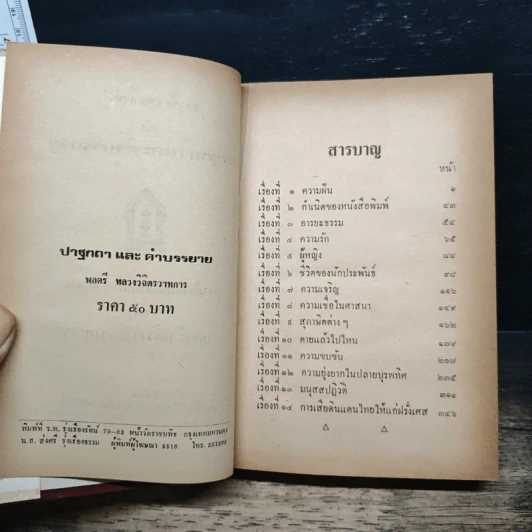 ปาฐกถา และ คำบรรยาย
พลตรี หลวงวิจิตรวาทการ
ราคา ๕๐ บาท
พิมพ์ที่ ร.พ. รุ่งเรืองรัตน์
น.ส. ส่งศรี รุ่งเรืองธรรม ผู้พิมพ์ผู้โฆษณา 2516 โทร.
สารบาญ
หน้า
เรื่องที่ ๑ ความฝัน ๑
เรื่องที่ ๒ กำเนิดของหนังสือพิมพ์ ๔๓
เรื่องที่ ๓ อารยะธรรม ๕๔
เรื่องที่ ๔ ความรัก ๖๕
เรื่องที่ ๕ ผู้หญิง ๘๔
เรื่องที่ ๖ ชีวิตของนักประพันธ์ ๙๘
เรื่องที่ ๗ ความเจริญ ๑๑๖
เรื่องที่ ๘ ความเชื่อในศาสนา ๑๔๙
เรื่องที่ ๙ สุภาษิตต่าง ๆ ๑๖๒
เรื่องที่ ๑๐ ตายแล้วไปไหน ๑๗๙
เรื่องที่ ๑๑ ความขบขัน ๒๐๗
เรื่องที่ ๑๒ ความยุ่งยากในปลายบุรพทิศ ๒๓๕
เรื่องที่ ๑๓ มนุสสปฏิวัติ
เรื่องที่ ๑๔ การเสียดินแดนไทยให้แก่ฝรั่งเศส ๓๔๖